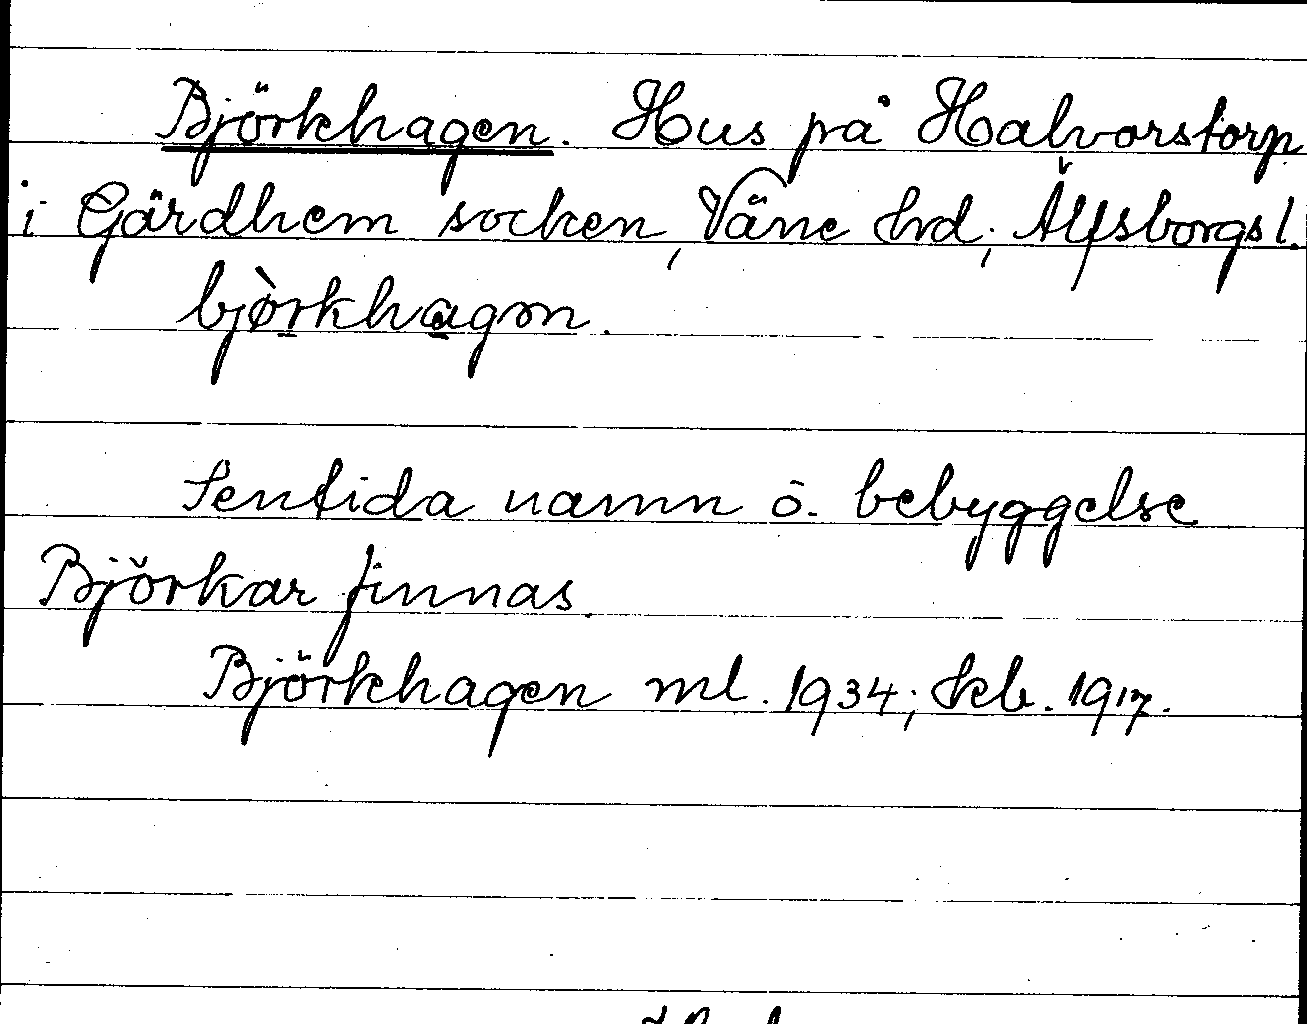 Björkhagen. Hus på Halvorstorp
i Gärdhem socken, Väne hd; Älfsborgs l.
bjòrkhagen.
Sentida namn ö. bebyggelse
Björkar finnas.
Björkhagen ml. 1934; Skb. 1917.